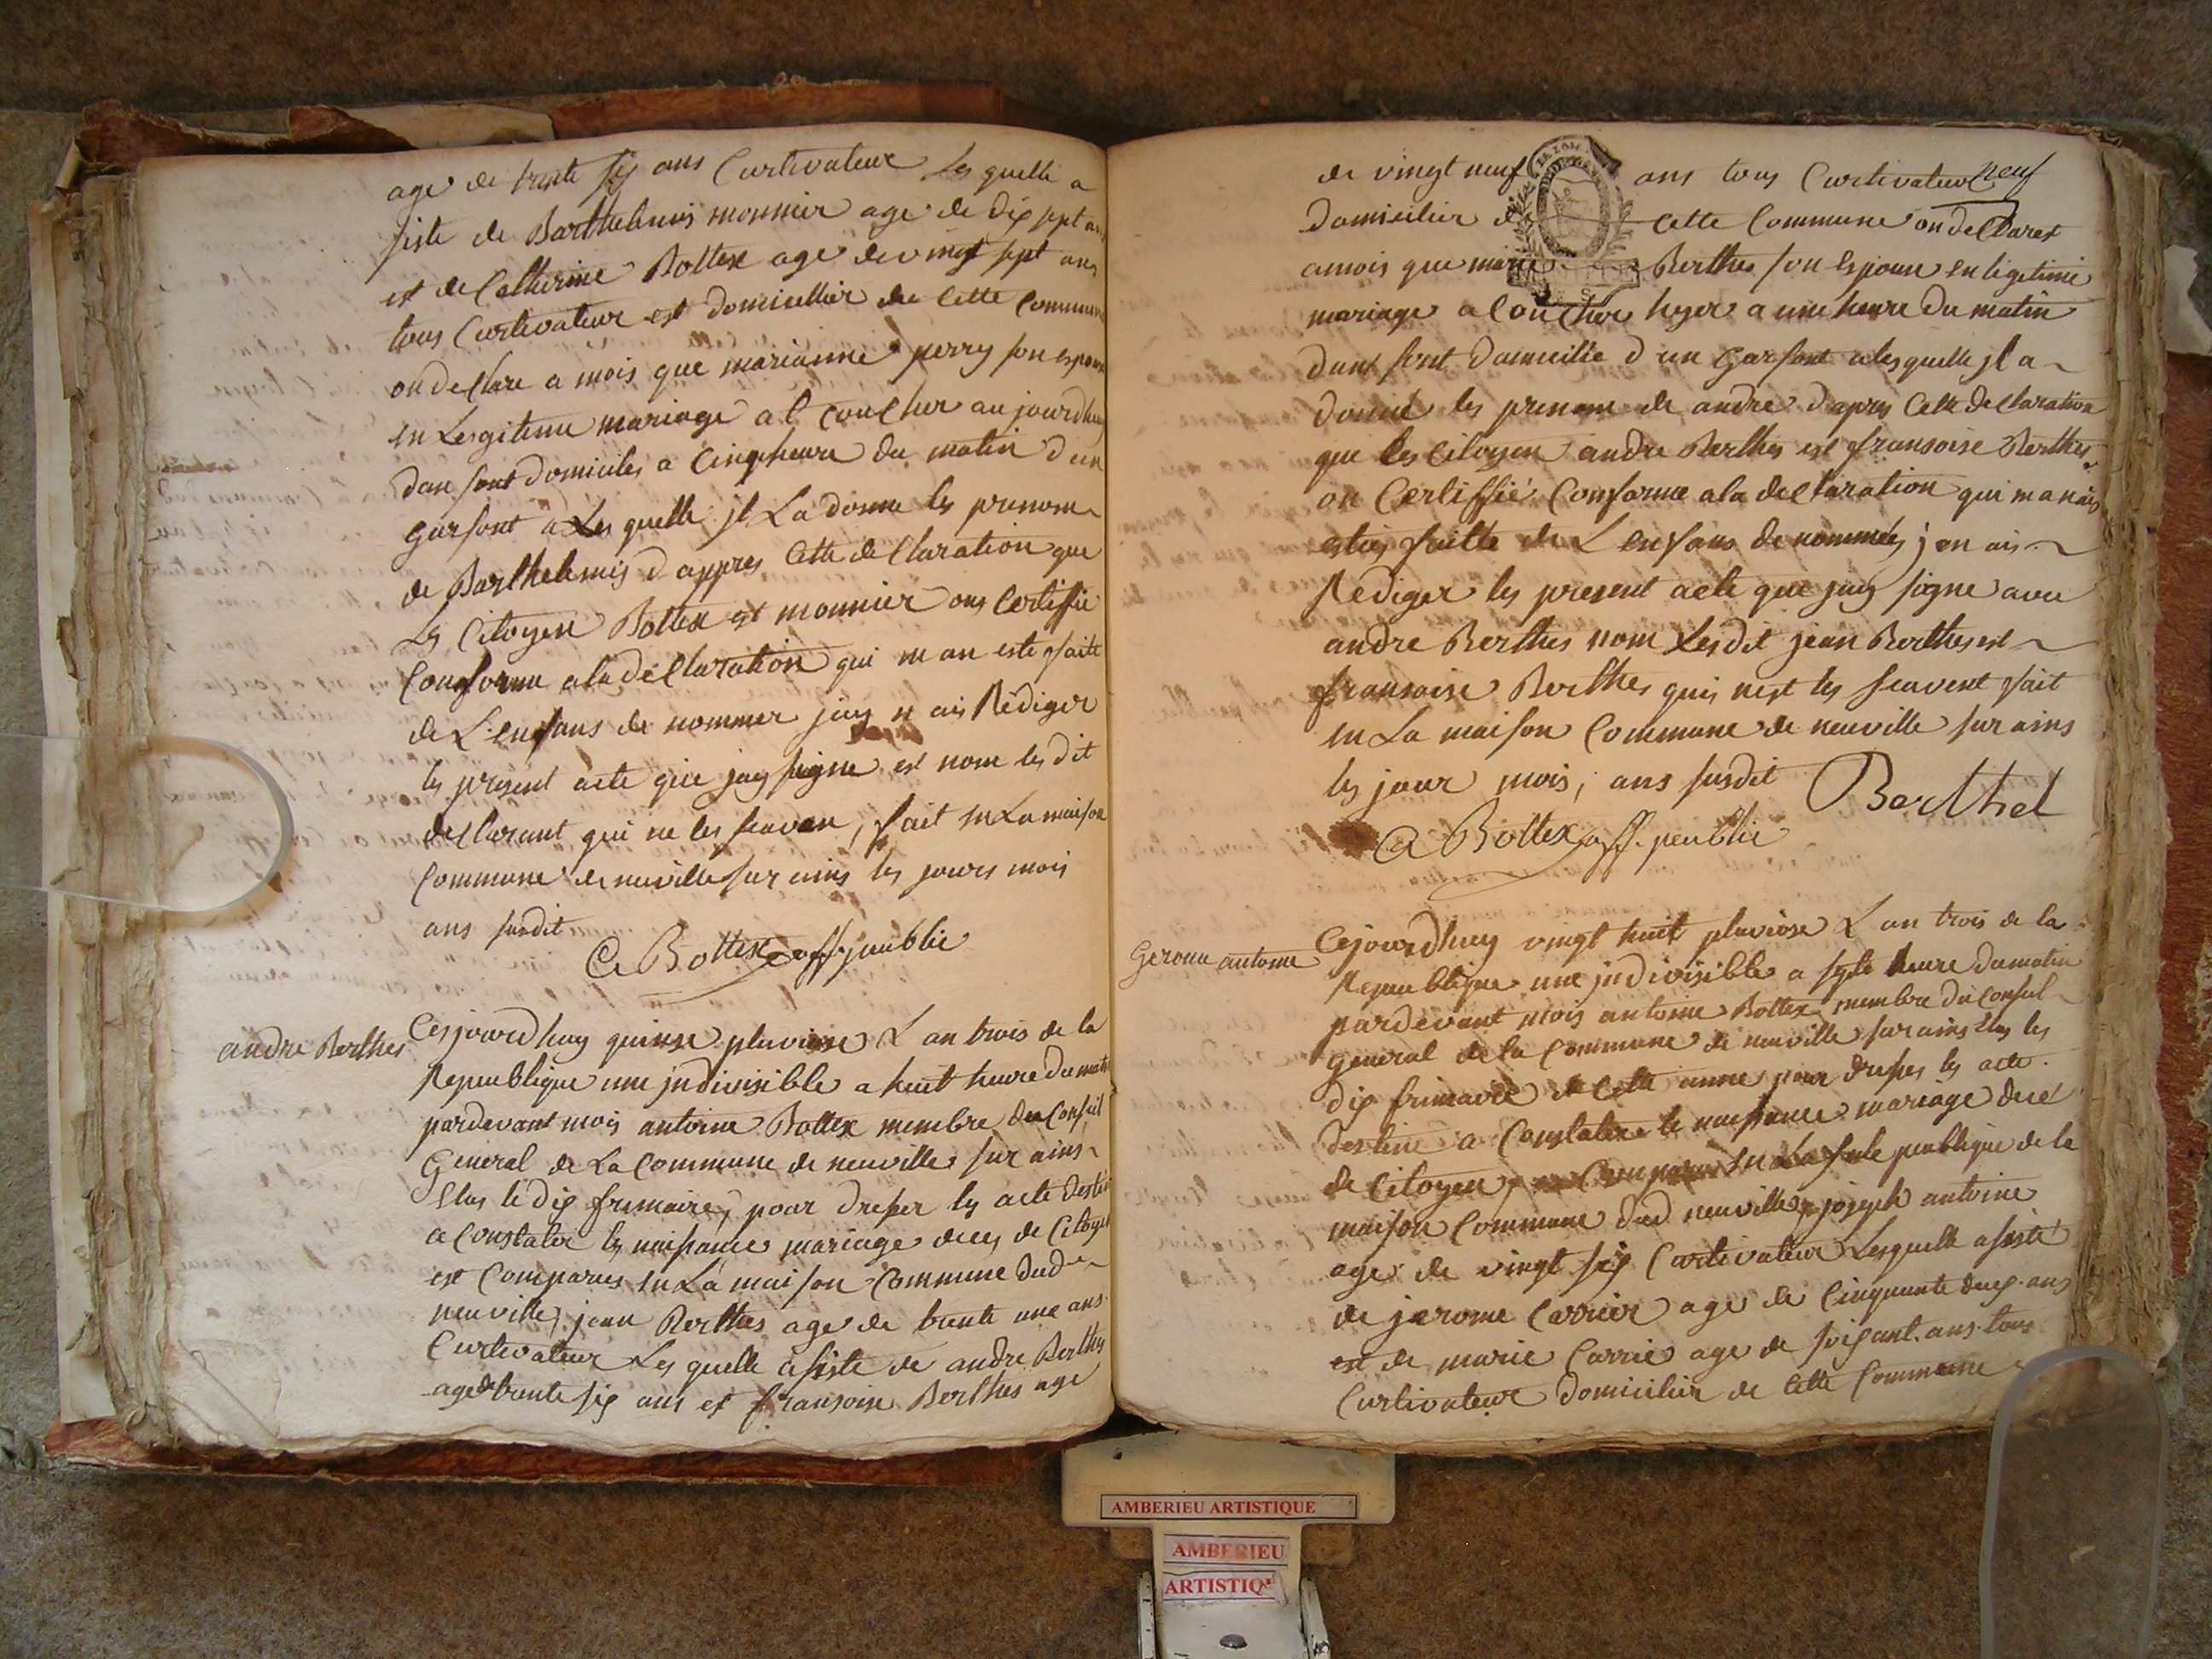 age de trente six ans Curtivateur Les quelle a
siste de Barthelemis monnier age de dix sept ans
est de Catherine Bottex age de vingt sept ans
tous Curtivateur est domicillier de Cette Commune
on declare a mois que marianne perry son espouse
en Lesgitime mariage a l Coucher aujourdhuy
dan sont domiciles a Cinq heure du matin d un
garsont a Les quelle jl La donne les prenom
de Barthelemis d appres Cette declaration que
Les Citoyen Bottex est monnier ons Certiffie
Conforme a la declaration qui m an este faite
de L enfans de nommer jay n ais Rediger
les present acte que jay signe est nom les dit
declarant qui ne les scavan, fait en La maison
Commune de neuville sur ains les jours mois
ans susdit
A Bottex off. peublic
andre Berthes
Cesjourdhuy quinse pluviose L an trois de la
Republique une jndivisible a huit heure du matin
pardevant mois antoine Bottex membre du Conseil
General de La Commune de neuville sur ains
Elus le dix frimaire, pour dresser les acte destine
a Constater les naissance mariage deces de Citoyen
est Comparus en La maison Commune dud
neuville, jean Berthes age de trente une ans
Curtivateur Les quelle asiste de andre Berthes
age de trente six ans et fransoise Berthes age
de vingt neuf ans tous Curtivateur neuf
domicilier de cette Commune on declares
amois que marie Berthes son Espouse en ligetime
mariage a Coucher hyer a une heure du matin
dans sont domicilie d un Garsont a les quelle jl a
donné les prenom de andre d apres Cette declaration
que les Citoyen andre Berthes est fransoise Berthes
on Certiffié Conforme a la declaration qui m an ais
estés faitte de L enfans de nommés j en ais
Rediger les present acte que jay signe avec
andre Berthes nom Lesdit jean Berthes est
fransoise Berthes quis nest les scavent fait
en La maison Commune de neuville sur ains
les jour mois, ans susdit Berthet
A Bottex off. peublic
antoine
Cejourdhuy vingt huit pluviose L an trois de la
Republique une jndivisible a septe heure du matin
pardevant mois antoine Bottex membre du Conseil
general de la Commune de neuville sur ains Elus les
dix frimaire de Cette anne pour dresser les acte
destine a Constater le naissance mariage decé
de Citoyen, Comparus en La sale peublique de la
maison Commune dud neuville, joseph antoine
age de vingt six Curtivateur Lesquelle asisté
de jerome Carrier age de Cinquante deux ans
est de marie Carrie age de soixant ans tous
Curtivateur domicilier de Cette Commune
AMBERIEU ARTISTIQUE
AMBERIEU
ARTISTIQ